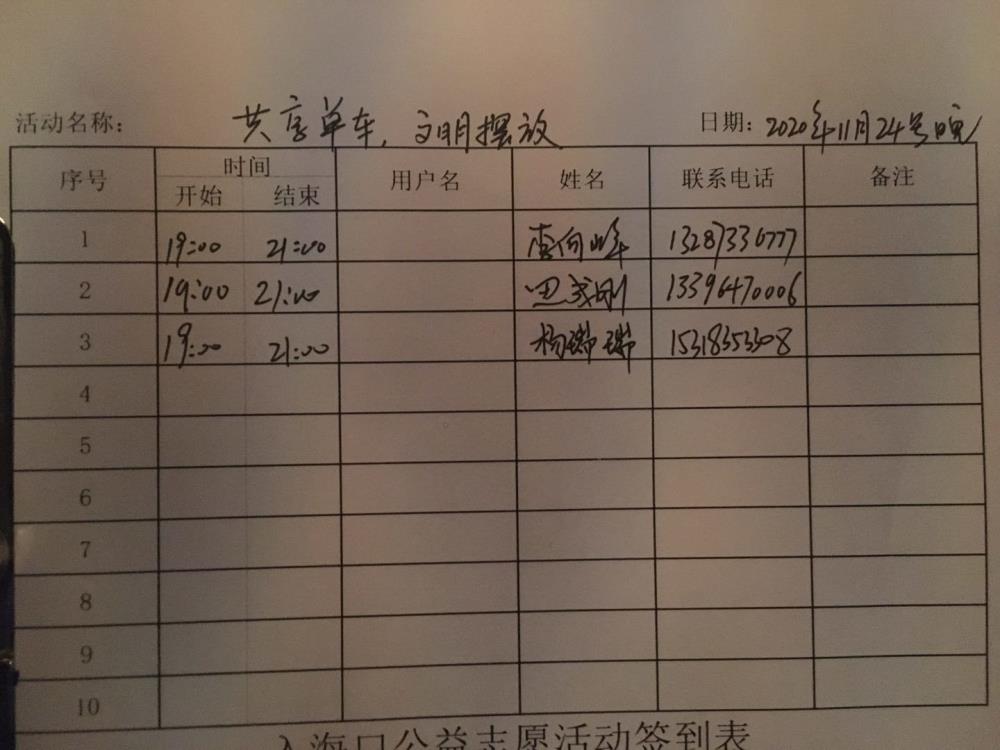 活动名称: 共享单车,文明摆放 日期: 2020年11月24号晚
序号 时间 用户名 姓名 联系电话 备注
开始 结束
1 19:00 21:00 李向峰 13287336777
2 19:00 21:00 刚 13396470006
3 19:00 21:00 杨瑞瑞 15318353308
4
5
6
7
8
9
10
入海口公益志愿活动签到表